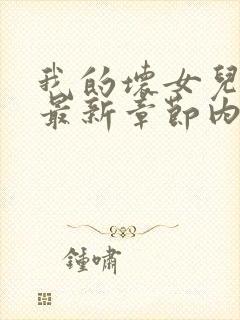 我的壞女兒
最新章節內
鍾嘯